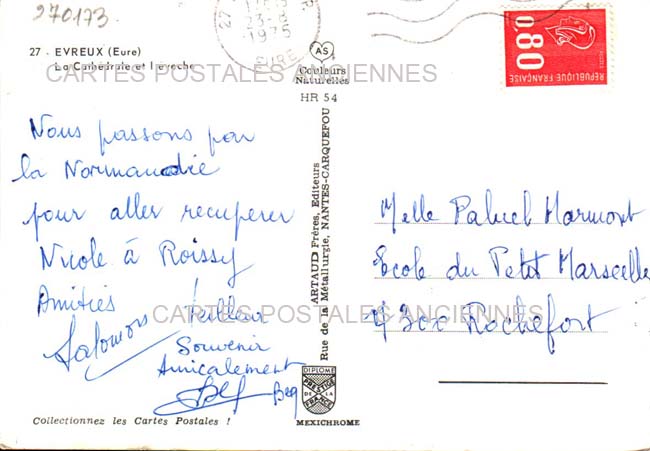 270173
27 - EVREUX (Eure)
La Cathédrale et l'évêché
CARTES POSTALES ANCIENNES
23-8
1975
EURE
AS
Couleurs
Naturelles
HR 54
0,80
REPUBLIQUE FRANÇAISE
Nous passons par
la Normandie
pour aller recuperer
Nicole à Roissy
Amitiés
Salomon
Meilleur
Souvenir
Amicalement
ARTAUD Frères, Editeurs
Rue de la Métallurgie, NANTES-CARQUEFOU
Melle Paluel Marmont
Ecole du Petit Marseille
17300 Rochefort
CARTES POSTALES ANCIENNES
DIPLOME
PRESTIGE
DE LA
FRANCE
MEXICHROME
Collectionnez les Cartes Postales !